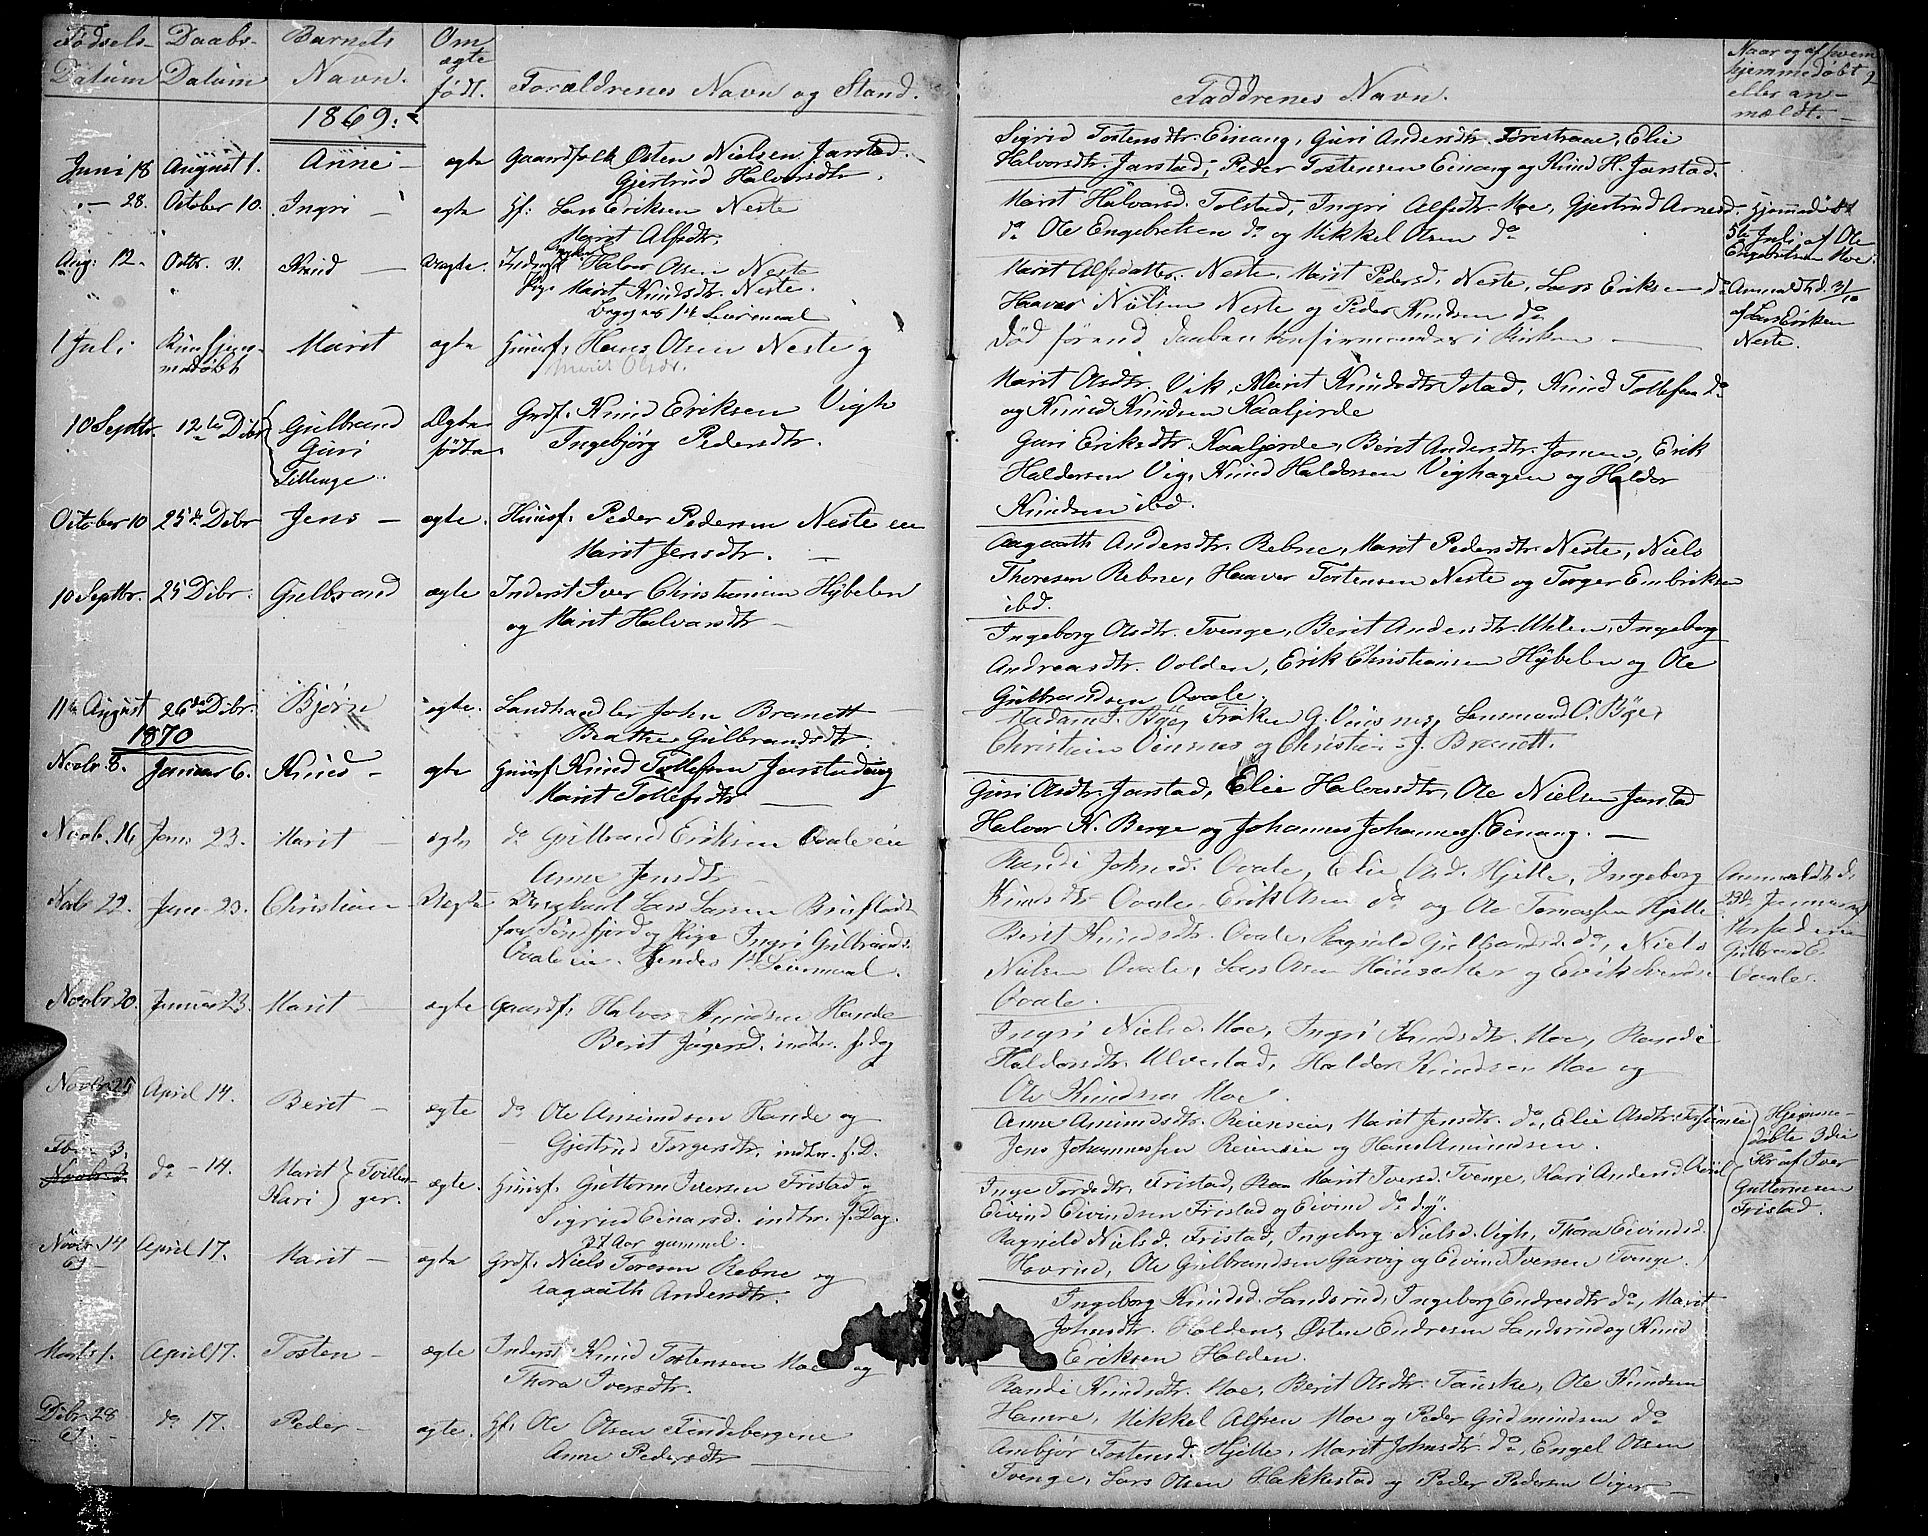 Fødsels- Daabs- Barnets Om
Datum Datum Navn. ægte
født. Forældrenes Navn og Stand.
1869:
Juni 18 August 1. Anne - ægte Gaardfolk Østen Nielsen Jarstad.
Gjertrud Halvorsdtr.
- 28. October 10. Ingri - ægte Hf: Lars Eriksen Neste
Marit Alfsdtr.
Aug: 12. Octbr. 31. Knud - Uægte. Halvor Olsen Neste
Pige Marit Knudsdtr. Neste.
Begges 1ste Leiermaal
1 Juli Kun hjemmedøbt Marit ægte Huusf: Hans Olsen Neste og
Marit Olsdtr.
10 Septbr. 12te Dcbr. Gulbrand Ægte Grdf. Knud Eriksen Vigh
Guri fødte Ingebjørg Pedersdtr.
Tvillinge
October 10 25de Dcbr Jens - ægte. Huusf. Peder Pedersen Neste eie
Marit Jensdtr. -
10 Septbr. 25 Dcbr. Gulbrand ægte Inderst Iver Christiansen Hybelen
og Marit Halvorsdtr -
11te August 26de Dcbr. Bjørn ægte. Landhandler John Brandt
Beathe Gulbrandsdtr
1870
Novbr. 8. Januar 6. Knud - ægte Huusf Knud Tollefsen Jarstadeie
Marit Tollefsdtr -
Novb. 16 Jan. 23. Marit - ægte do Gulbrand Eriksen Ovale eie
Anne Jensdtr -
Novbr 22. Jan. 23. Christian - Uægte Ungkarl Lars Larsen Bruflodt
fra Tonsfjord og Pige Ingri Gulbrands.
Ovale eie. Hendes 1ste Leiermaal.
Novbr 20. Januar 23. Marit - ægte Gaardf: Halvor Knudsen Hande
Berit Jøgersd. indtr. f. Dag
Novbr 25 April 14. Berit - ægte do Ole Amundsen Hande og
Gjertrud Torgersdtr. indtr. f. D.
Fbr. 3.
Novbr. 3. do - 14. Marit } Tvillinger ægte. Huusf. Guttorm Iversen Fristad og
Kari } Sigrid Einarsd. indtr. f. Dag.
27 Aar gammel.
Novbr 14 April 17. Marit - ægte Grdf. Niels Toresen Rebne og
69 Aagaath Andersdtr.
Marts 1. April 17. Tosten - ægte Inderst Knud Tostensen Moe og
Thora Iversdtr.
Dcbr 28 do 17. Peder - ægte. Hf. Ole Olsen Findebergene
Anne Pedersdtr -
Faddrenes Navn.
Naar og af hvem
hjemmedøbt
eller an-
mældt. 2
Sigrid Tostensdtr. Einang, Guri Andersdtr. Elie
Halvorsdtr. Jarstad, Peder Tostensen Einang og Knud H. Jarstad.
Marit Halvorsd. Tolstad, Ingri Alfsdtr. Moe, Gjertrud Arnesd.
do Ole Engebretsen do og Mikkel Olsen do
Hjemmedøbt
5te Juli af Ole
Engebretsen Moe.
Marit Alfsdatter Neste, Marit Pedersd. Neste, Lars Eriksen do
Haavar Nielsen Neste og Peder Knudsen do.
Anmældt d. 31/10
af Lars Eriksen
Neste.
Død førend Daaben konfirmeredes i Kirken -
Marit Olsdtr. Vik, Marit Knudsdtr Istad, Knud Tollefsen do
og Knud Knudsen Kaaljorde
Guri Eriksdtr. Kaaljorde, Berit Andersdtr. Jomen, Erik
Haldorsen Vig, Knud Haldorsen Vighagen og Haldor
Knudsen ibd.
Aagaath Andersdtr. Rebne, Marit Pedersdtr. Neste, Niels
Thoresen Rebne, Haavar Tostensen Neste og Torger Embriksen
ibd.
Ingeborg Olsdtr. Tvenge, Berit Andersdtr. Uhlen, Ingeborg
Andreasdtr. Volden, Erik Christiansen Hybelen og Ole
Gulbrandsen Ovale.
Madam J. Bye, Frøken G. Vinsnes, Lensmand O. Bye,
Christian Vinsnes og Christian J. Brandt.
Guri Olsdtr. Jarstad, Elie Halvorsdtr, Ole Nielsen Jarstad
Halvor K. Berge og Johannes Johannes. Einang. -
Randi Johnsd. Ovale, Elie And. Hjelle, Ingeborg
Knudsdtr Ovale, Erik Olsen do og Ole Tomassen Hjelle
Anmældt d.
23de Januar af
Morfaderen
Gulbrand E.
Ovale.
Berit Knudsdtr. Ovale, Ragnild Gulbrandsd. do, Niels
Nielsen Ovale, Lars Olsen Huusetter og Erik
Ovale.
Ingri Nielsd. Moe, Ingri Knudsdtr. Moe, Randi
Haldorsdtr. Ulvestad, Haldor Knudsen Moe og
Ole Knudsen Moe.
Anne Amundsdtr. Reiensen, Marit Jensdtr. do, Elie Olsdtr.
Jens Johannessen Reiensen og Hans Amundsen.
Inge Tordsdtr. Fristad, Marit Iversd. Tvenge, Kari Andersd.
Eivind Eivindsen Fristad og Eivind do dy.
Ragnild Nielsd. Fristad, Ingeborg Nielsd. Vigh, Thora Eivindsd.
Hovrud, Ole Gulbrandsen Garvig og Eivind Iversen Tvenge.
Hjemme-
døbte 3die
Fbr af Iver
Guttormsen
Fristad.
Ingeborg Knudsd. Landsrud, Ingeborg Endresdtr do, Marit
Johnsdtr. Holden, Østen Endresen Landsrud og Knud
Eriksen Holden.
Randi Knudsdtr. Moe, Berit Olsdtr. Tauske, Ole Knudsen
Hamre, Mikkel Alfsen Moe og Peder Gudmundsen do
Ambjør Tostensd. Hjelle, Marit Johnsdtr. do, Engel Olsen
Tvenge, Lars Olsen Hakkestad og Peder Pedersen Viger -